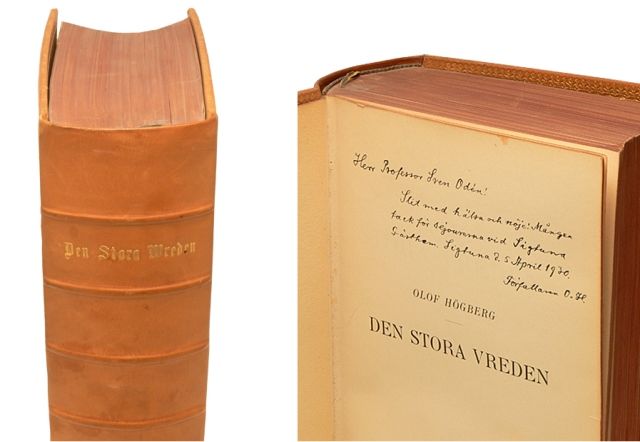 Den Stora Wreden
Herr Professor Sven Odén!
Slit med hälsa och nöje! Mången
tack för séjourerna vid Sigtuna
Gästhem. Sigtuna d. 5 April 1930.
Författaren O. H.
OLOF HÖGBERG
DEN STORA VREDEN